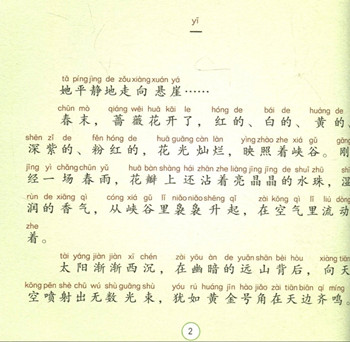 yī
一
tā píng jìng de zǒu xiàng xuán yá
她平静地走向悬崖……
chūn mò qiáng wēi huā kāi le hóng de bái de huáng de
春末，蔷薇花开了，红的、白的、黄的、
shēn zǐ de fěn hóng de huā guāng càn làn yìng zhào zhe xiá gǔ gāng
深紫的、粉红的，花光灿烂，映照着峡谷。刚
jīng yì chǎng chūn yǔ huā bàn shàng hái zhān zhe liàng jīng jīng de shuǐ zhū shī
经一场春雨，花瓣上还沾着亮晶晶的水珠，湿
rùn de xiāng qì cóng xiá gǔ lǐ niǎo niǎo shēng qǐ zài kōng qì lǐ liú dòng
润的香气，从峡谷里袅袅升起，在空气里流动
zhe
着。
tài yáng jiàn jiàn xī chén zài yōu àn de yuǎn shān bèi hòu xiàng tiān
太阳渐渐西沉，在幽暗的远山背后，向天
kōng pēn shè chū wú shù guāng shù yóu rú huáng jīn hào jiǎo zài tiān biān qí míng
空喷射出无数光束，犹如黄金号角在天边齐鸣。
2